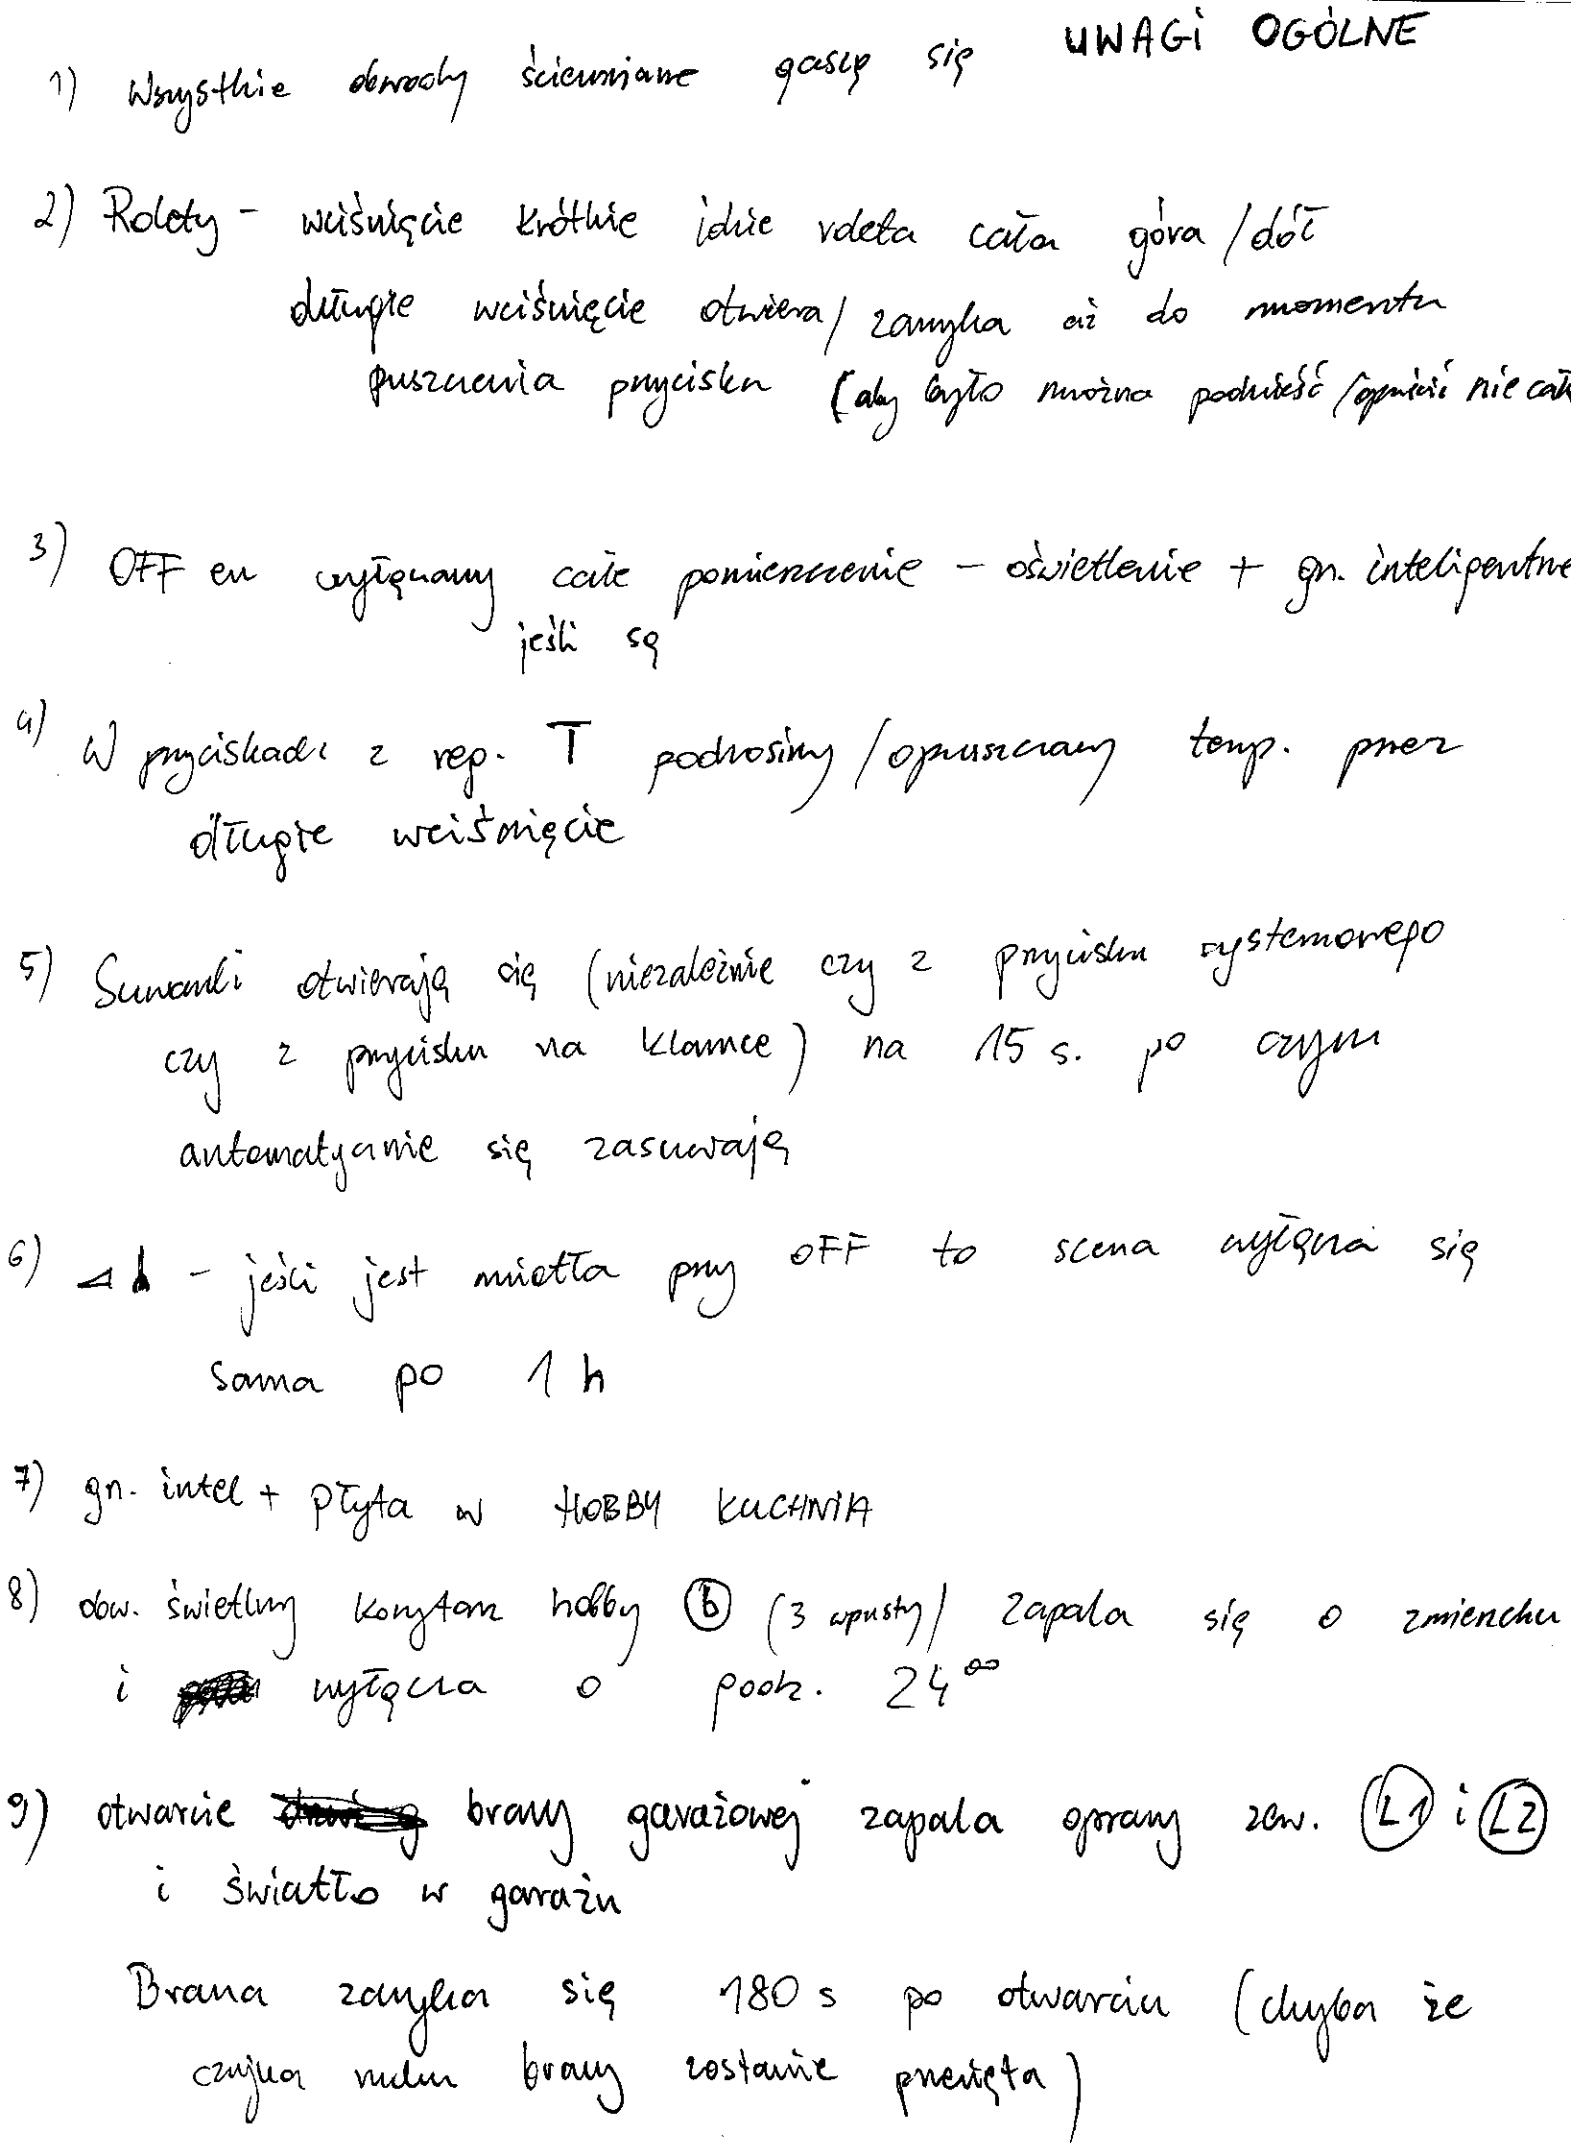 UWAGI OGÓLNE
1) Wszystkie obwody ściemniane gaszą się
2) Rolety - wciśnięcie krótkie idzie roleta cała góra/dół
długie wciśnięcie otwiera/zamyka aż do momentu
puszczenia przycisku (aby było można podnieść/opuścić nie cał
3) OFF en wyłączamy całe pomieszczenie - oświetlenie + gn. inteligentne
jeśli są
4) W przyciskach z reg. T podnosimy/opuszczamy temp. przez
długie wciśnięcie
5) Suwanki otwierają się (niezależnie czy z przycisku systemowego
czy z przycisku na klamce) na 15 s. po czym
automatycznie się zasuwają
6) - jeśli jest miotła przy OFF to scena wyłącza się
sama po 1 h
7) gn. intel + płyta w HOBBY KUCHNIA
8) obw. świetlny korytarz hobby 6 (3 wpusty) zapala się o zmierzchu
i wyłącza o godz. 24⁰⁰
9) otwarcie bramy garażowej zapala oprawy zew. L1 i L2
i światło w garażu
Brama zamyka się 180 s po otwarciu (chyba że
czujka ruchu bramy zostanie przecięta)